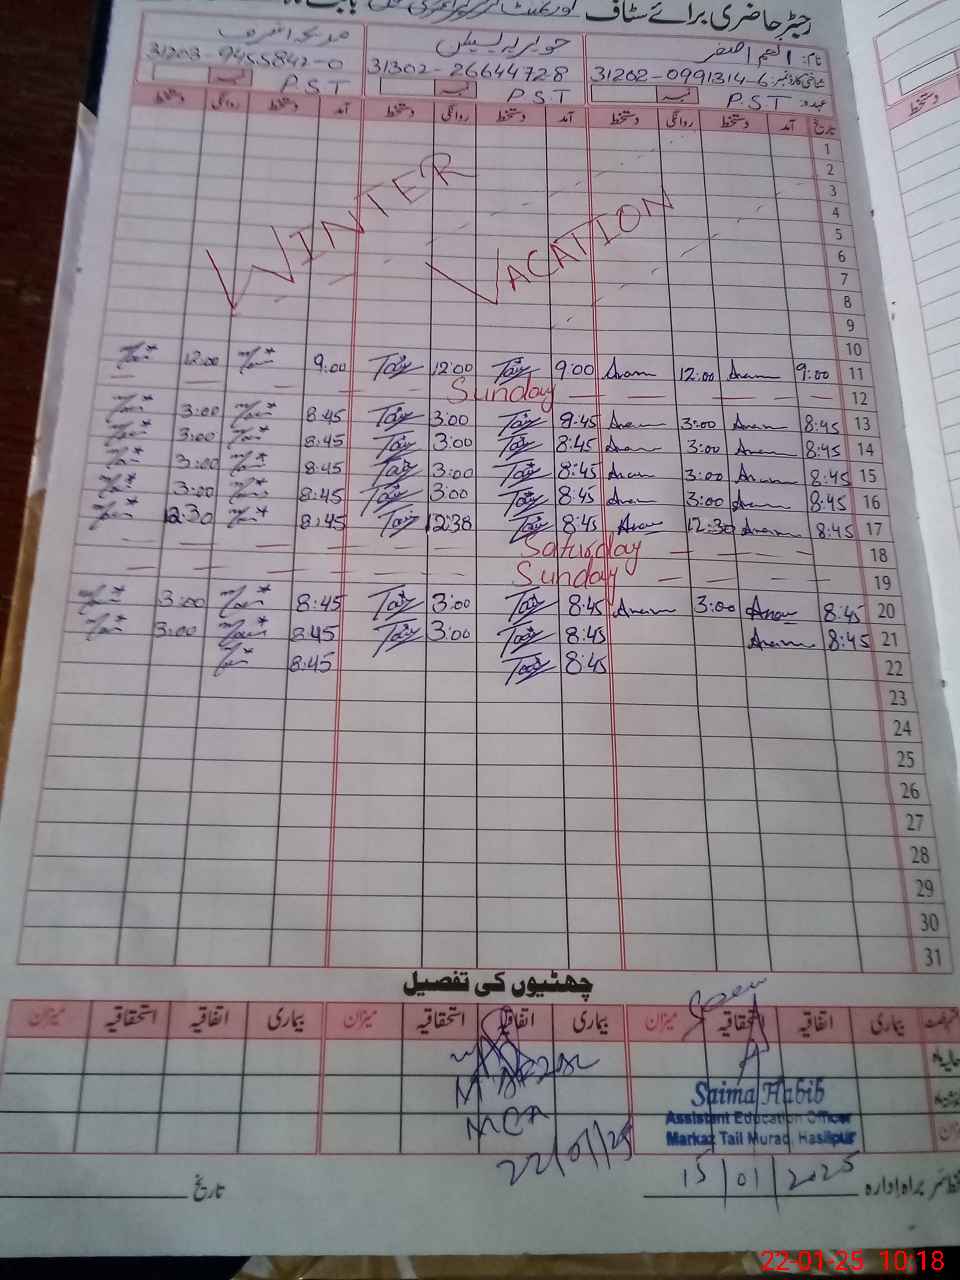 رجسٹر حاضری برائے سٹاف
نام: انعم اصغر جویریہ یسین مدیحہ اشرف
شناختی کارڈ نمبر: 31202-0991314-6 31302-2664472-8 31203-9455842-0
عہدہ: P.S.T P.S.T P.S.T
تاریخ آمد دستخط روانگی دستخط آمد دستخط روانگی دستخط آمد دستخط روانگی دستخط
1
2
3
4
5
6
7
8
9
10
WINTER VACATION
11 9:00 Anam 12:00 Anam 9:00 12:00 9:00 12:00
12 Sunday
13 8:45 Anam 3:00 Anam 9:45 3:00 8:45 3:00
14 8:45 Anam 3:00 Anam 8:45 3:00 8:45 3:00
15 8:45 Anam 3:00 Anam 8:45 3:00 8:45 3:00
16 8:45 Anam 3:00 Anam 8:45 3:00 8:45 3:00
17 8:45 Anam 12:30 Anam 8:45 12:38 8:45 12:30
18 Saturday
19 Sunday
20 8:45 Anam 3:00 Anam 8:45 3:00 8:45 3:00
21 8:45 Anam 8:45 3:00 8:45 3:00
22 8:45 8:45
23
24
25
26
27
28
29
30
31
چھٹیوں کی تفصیل
بیماری اتفاقیہ استحقاقیہ میزان بیماری اتفاقیہ استحقاقیہ میزان بیماری اتفاقیہ استحقاقیہ میزان
Saima Habib
Assistant Education Officer
Markaz Tail Murad, Hasilpur
MEA
22/01/25
15/01/2025
سربراہ ادارہ
تاریخ
22-01-25 10:18